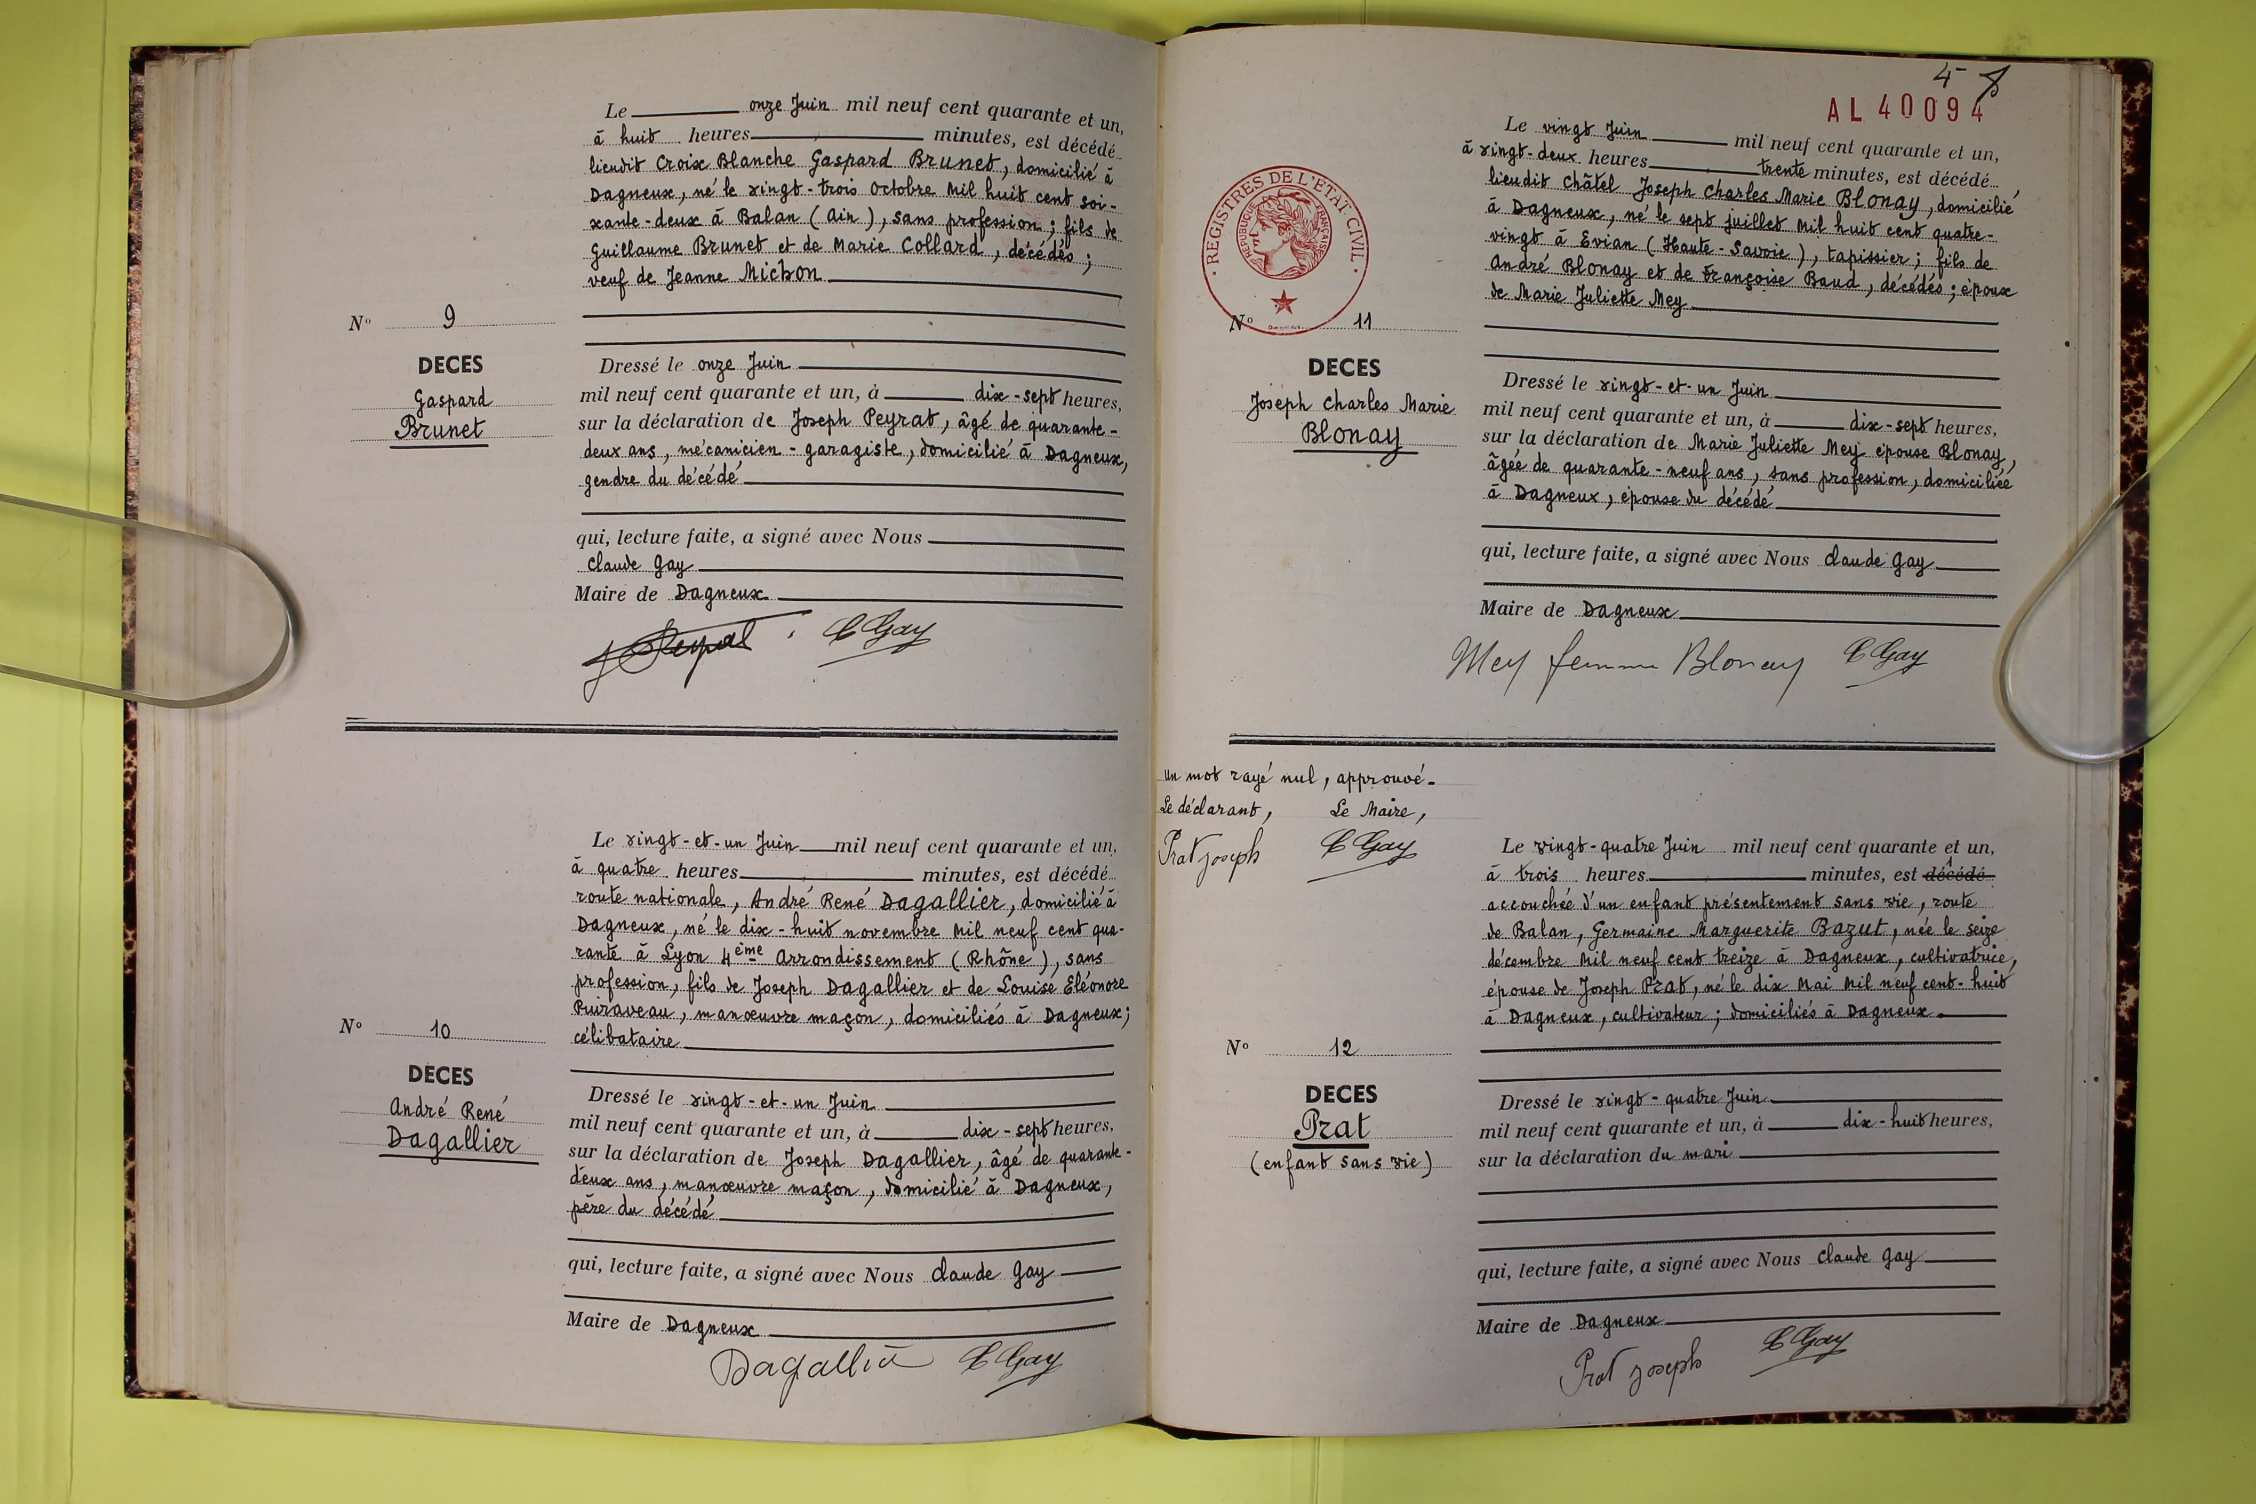 Le onze Juin mil neuf cent quarante et un,
à huit heures minutes, est décédé
lieudit Croix Blanche Gaspard Brunet, domicilié à
Dagneux, né le vingt-trois Octobre mil huit cent soi-
xante-deux à Balan (Ain), sans profession; fils de
Guillaume Brunet et de Marie Collard, décédés;
veuf de Jeanne Michon
N° 9
DECES
Gaspard
Brunet
Dressé le onze Juin
mil neuf cent quarante et un, à dix-sept heures,
sur la déclaration de Joseph Peyrat, âgé de quarante-
deux ans, mécanicien-garagiste, domicilié à Dagneux,
gendre du décédé
qui, lecture faite, a signé avec Nous
Claude Gay
Maire de Dagneux
J Peyrat C Gay
Le vingt-et-un Juin mil neuf cent quarante et un,
à quatre heures minutes, est décédé
route nationale, André René Dagallier, domicilié à
Dagneux, né le dix-huit novembre mil neuf cent qua-
rante à Lyon 4ème Arrondissement (Rhône), sans
profession, fils de Joseph Dagallier et de Louise Eléonore
Puiraveau, manœuvre maçon, domiciliés à Dagneux;
célibataire
N° 10
DECES
André René
Dagallier
Dressé le vingt-et-un Juin
mil neuf cent quarante et un, à dix-sept heures,
sur la déclaration de Joseph Dagallier, âgé de quarante-
deux ans, manœuvre maçon, domicilié à Dagneux,
père du décédé
qui, lecture faite, a signé avec Nous Claude Gay
Maire de Dagneux
Dagallier C Gay
AL 40094
Le vingt Juin mil neuf cent quarante et un,
à vingt-deux heures trente minutes, est décédé
lieudit Châtel Joseph Charles Marie Blonay, domicilié
à Dagneux, né le sept juillet mil huit cent quatre-
vingt à Evian (Haute-Savoie), tapissier; fils de
André Blonay et de Françoise Baud, décédés; époux
de Marie Juliette Mey
REGISTRES DE L'ETAT CIVIL
REPUBLIQUE FRANÇAISE
N° 11
DECES
Joseph Charles Marie
Blonay
Dressé le vingt-et-un Juin
mil neuf cent quarante et un, à dix-sept heures,
sur la déclaration de Marie Juliette Mey épouse Blonay,
âgée de quarante-neuf ans, sans profession, domiciliée
à Dagneux, épouse du décédé
qui, lecture faite, a signé avec Nous Claude Gay
Maire de Dagneux
Mey femme Blonay C Gay
un mot rayé nul, approuvé.
Le déclarant, Le Maire,
Prat joseph C Gay
Le vingt-quatre Juin mil neuf cent quarante et un,
à trois heures minutes, est décédé
accouchée d'un enfant présentement sans vie, route
de Balan, Germaine Marguerite Bazut, née le seize
décembre mil neuf cent treize à Dagneux, cultivatrice,
épouse de Joseph Prat, né le dix Mai mil neuf cent-huit
à Dagneux, cultivateur; domiciliés à Dagneux.
N° 12
DECES
Prat
(enfant sans vie)
Dressé le vingt-quatre Juin
mil neuf cent quarante et un, à dix-huit heures,
sur la déclaration du mari
qui, lecture faite, a signé avec Nous Claude Gay
Maire de Dagneux
Prat joseph C Gay